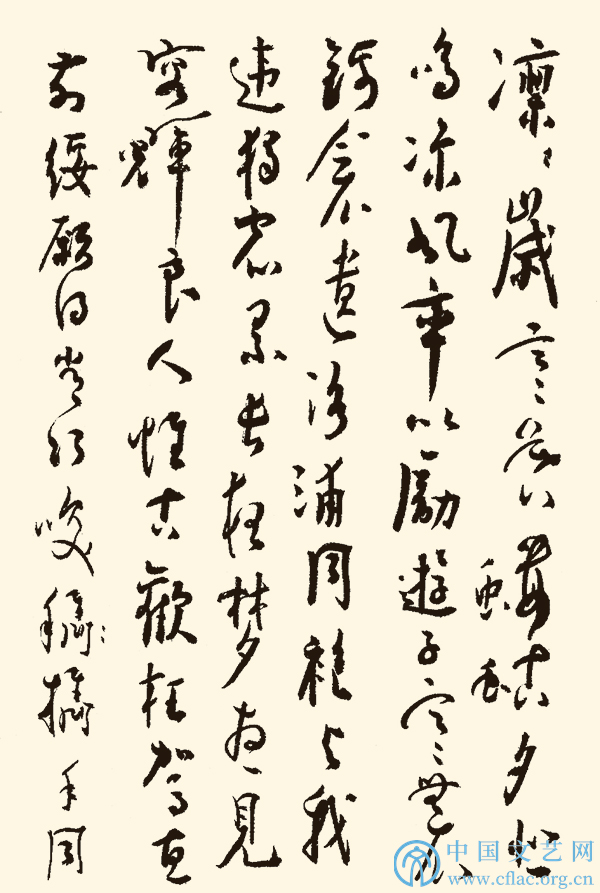 凜〻歲云〻暮螻蛄夕悲
鳴涼風率以勵遊子寒〻無衣
錦衾遺洛浦同袍與我
違獨宿累長枉夢想見
容輝良人惟古歡枉駕惠
前綏願得常巧笑攜攜手同
中国文艺网
www.cflac.org.cn